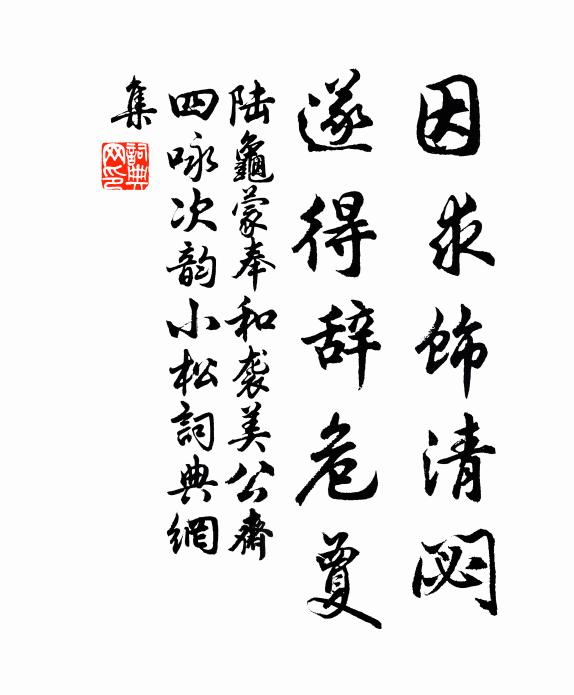 因求饰清閟
遂得辞危夐
陆龜蒙奉和袭美公齋
四咏次韵小松詞典網
集
詞典网印